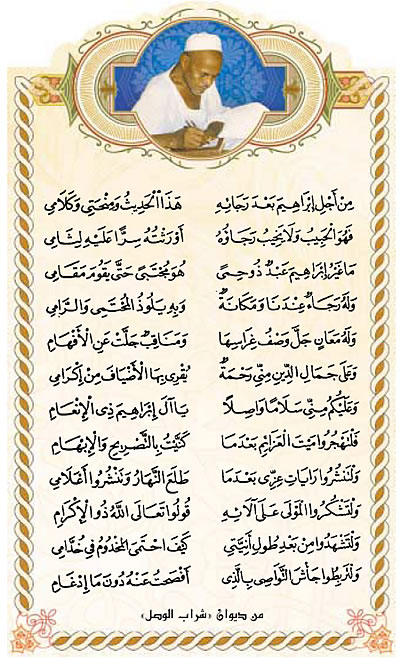 مِنْ أَجْلِ إِبْرَاهِيمَ بَعْدَ رَجَائِهِ هَذَا الْحَدِيثُ وَمِنْحَتِي وَكَلَامِي
فَهُوَ الْحَبِيبُ وَلَا يَخِيبُ رَجَاؤُهُ أَوْرَثْتُهُ سِرًّا عَلَيْهِ لِثَامِي
مَا غَيْرُ إِبْرَاهِيمَ عَبْدٌ ذُو حِمًى هُوَ مُجْتَبًى حَتَّى يَقُومَ مَقَامِي
وَلَهُ رَجَاءٌ عِنْدَنَا وَمَكَانَةٌ وَبِهِ يَلُوذُ الْمُحْتَمِي وَالرَّامِي
وَلَهُ مَعَانٍ جَلَّ وَصْفُ غِرَاسِهَا وَمَنَاقِبٌ جَلَّتْ عَنِ الْأَفْهَامِ
وَعَلَى جَمَالِ الدِّينِ مِنِّي رَحْمَةٌ يُقْرَى بِهَا الْأَضْيَافُ مِنْ إِكْرَامِي
وَعَلَيْكُمُ مِنِّي سَلَامًا وَاصِلًا يَا آلَ إِبْرَاهِيمَ ذِي الْإِنْعَامِ
فَلْتَهْجُرُوا مَيْتَ الْعَزَائِمِ بَعْدَمَا كَنَّيْتُ بِالتَّصْرِيحِ وَالْإِبْهَامِ
وَلْتَنْشُرُوا رَايَاتِ عِزِّي بَعْدَمَا طَلَعَ النَّهَارُ وَنَشِّرُوا أَعْلَامِي
وَلْتَشْكُرُوا الْمَوْلَى عَلَى آلَائِهِ قُولُوا تَعَالَى اللَّهُ ذُو الْإِكْرَامِ
وَلْتَشْهَدُوا مِنْ بَعْدِ طُولِ أَنِيَّتِي كَيْفَ احْتَمَى الْمَخْدُومُ فِي خُدَّامِي
وَلْتَرْبِطُوا جَأْشَ التَّوَاصِي بِالَّذِي أَفْصَحْتُ عَنْهُ دُونَ مَا إِدْغَامِ
من ديوان «شراب الوصل»